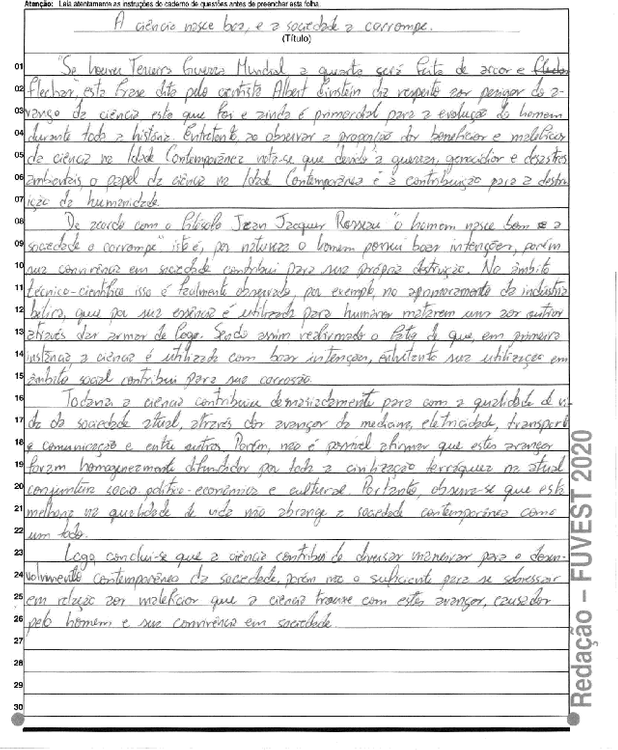 Atenção: Leia atentamente as instruções do caderno de questões antes de preencher esta folha.
A ciência nasce boa, e a sociedade a corrompe.
(Título)
01 "Se houver Terceira Guerra Mundial a quarta será feita de arcos e
02 flechas", esta frase dita pelo cientista Albert Einstein diz respeito aos perigos do a-
03 vanço da ciência esta que foi e ainda é primordial para a evolução do homem
04 durante toda a história. Entretanto, ao observar a proporção dos benefícios e malefícios
05 da ciência na Idade Contemporânea nota-se que devido a guerras, genocídios e desastres
06 ambientais o papel da ciência na Idade Contemporânea é a contribuição para a destru-
07 ição da humanidade.
08 De acordo com o filósofo Jean Jacques Rosseau "o homem nasce bom e a
09 sociedade o corrompe" isto é, por natureza o homem possui boas intenções, porém
10 sua convivência em sociedade contribui para sua própria destruição. No âmbito
11 técnico-científico isso é facilmente observado, por exemplo, no aprimoramento da indústria
12 bélica, que por sua essência é utilizada para humanos matarem uns aos outros
13 através das armas de fogo. Sendo assim reafirmado o fato de que, em primeira
14 instância a ciência é utilizada com boas intenções, entretanto sua utilização em
15 âmbito social contribui para sua corrosão.
16 Todavia a ciência contribuiu demasiadamente para com a qualidade de vi-
17 da da sociedade atual, através dos avanços da medicina, eletricidade, transporte
18 e comunicação e entre outros. Porém, não é possível afirmar que estes avanços
19 foram homogeneamente difundidos por toda a civilização terráquea na atual
20 conjuntura socio político-econômica e cultural. Portanto, observa-se que esta
21 melhora na qualidade de vida não abrange a sociedade contemporânea como
22 um todo.
23 Logo, conclui-se que a ciência contribui de diversas maneiras para o desen-
24 volvimento contemporâneo da sociedade, porém não o suficiente para se sobressair
25 em relação aos malefícios que a ciência trouxe com estes avanços, causados
26 pelo homem e sua convivência em sociedade.
27
28
29
30
Redação – FUVEST 2020